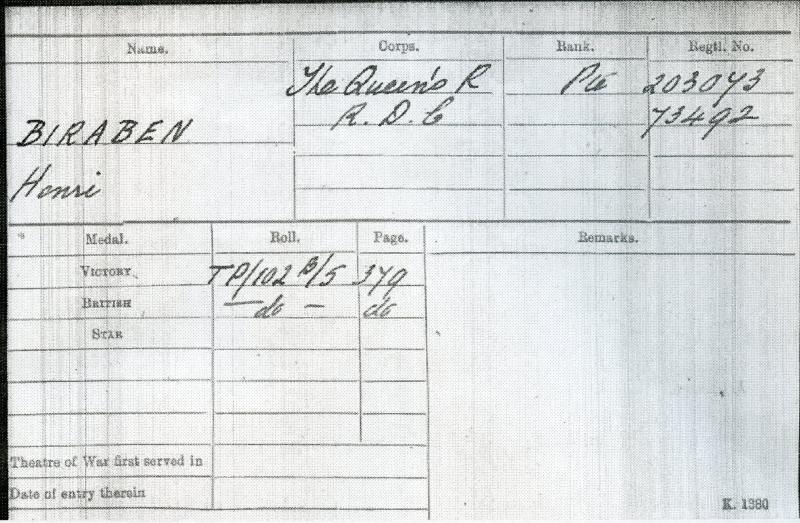 Name. Corps. Rank. Regtl. No.
The Queen's R Pte 203073
BIRABEN R. D. C 73492
Henri
Medal. Roll. Page. Remarks.
VICTORY TP/102 B/5 379
BRITISH — do — do
STAR
Theatre of War first served in
Date of entry therein
K. 1380